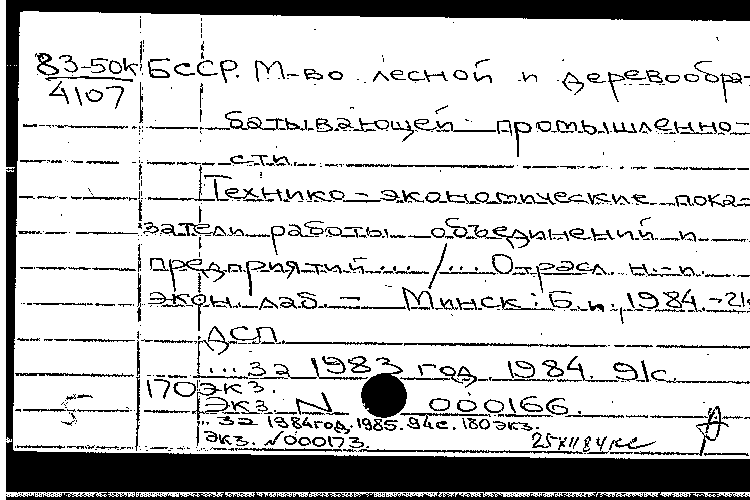 83-50к БССР. М-во лесной и деревообра-
4107
батывающей промышленно-
сти.
Технико-экономические пока-
затели работы объединений и
предприятий... /... Отрасл. н.-и.
экон. лаб. - Минск: Б.и., 1984. -21с
ДСП.
... за 1983 год. 1984. 91с.
170 экз.
Экз. N 000166.
5
... за 1984 год, 1985. 94с. 180 экз.
Экз. N000173.